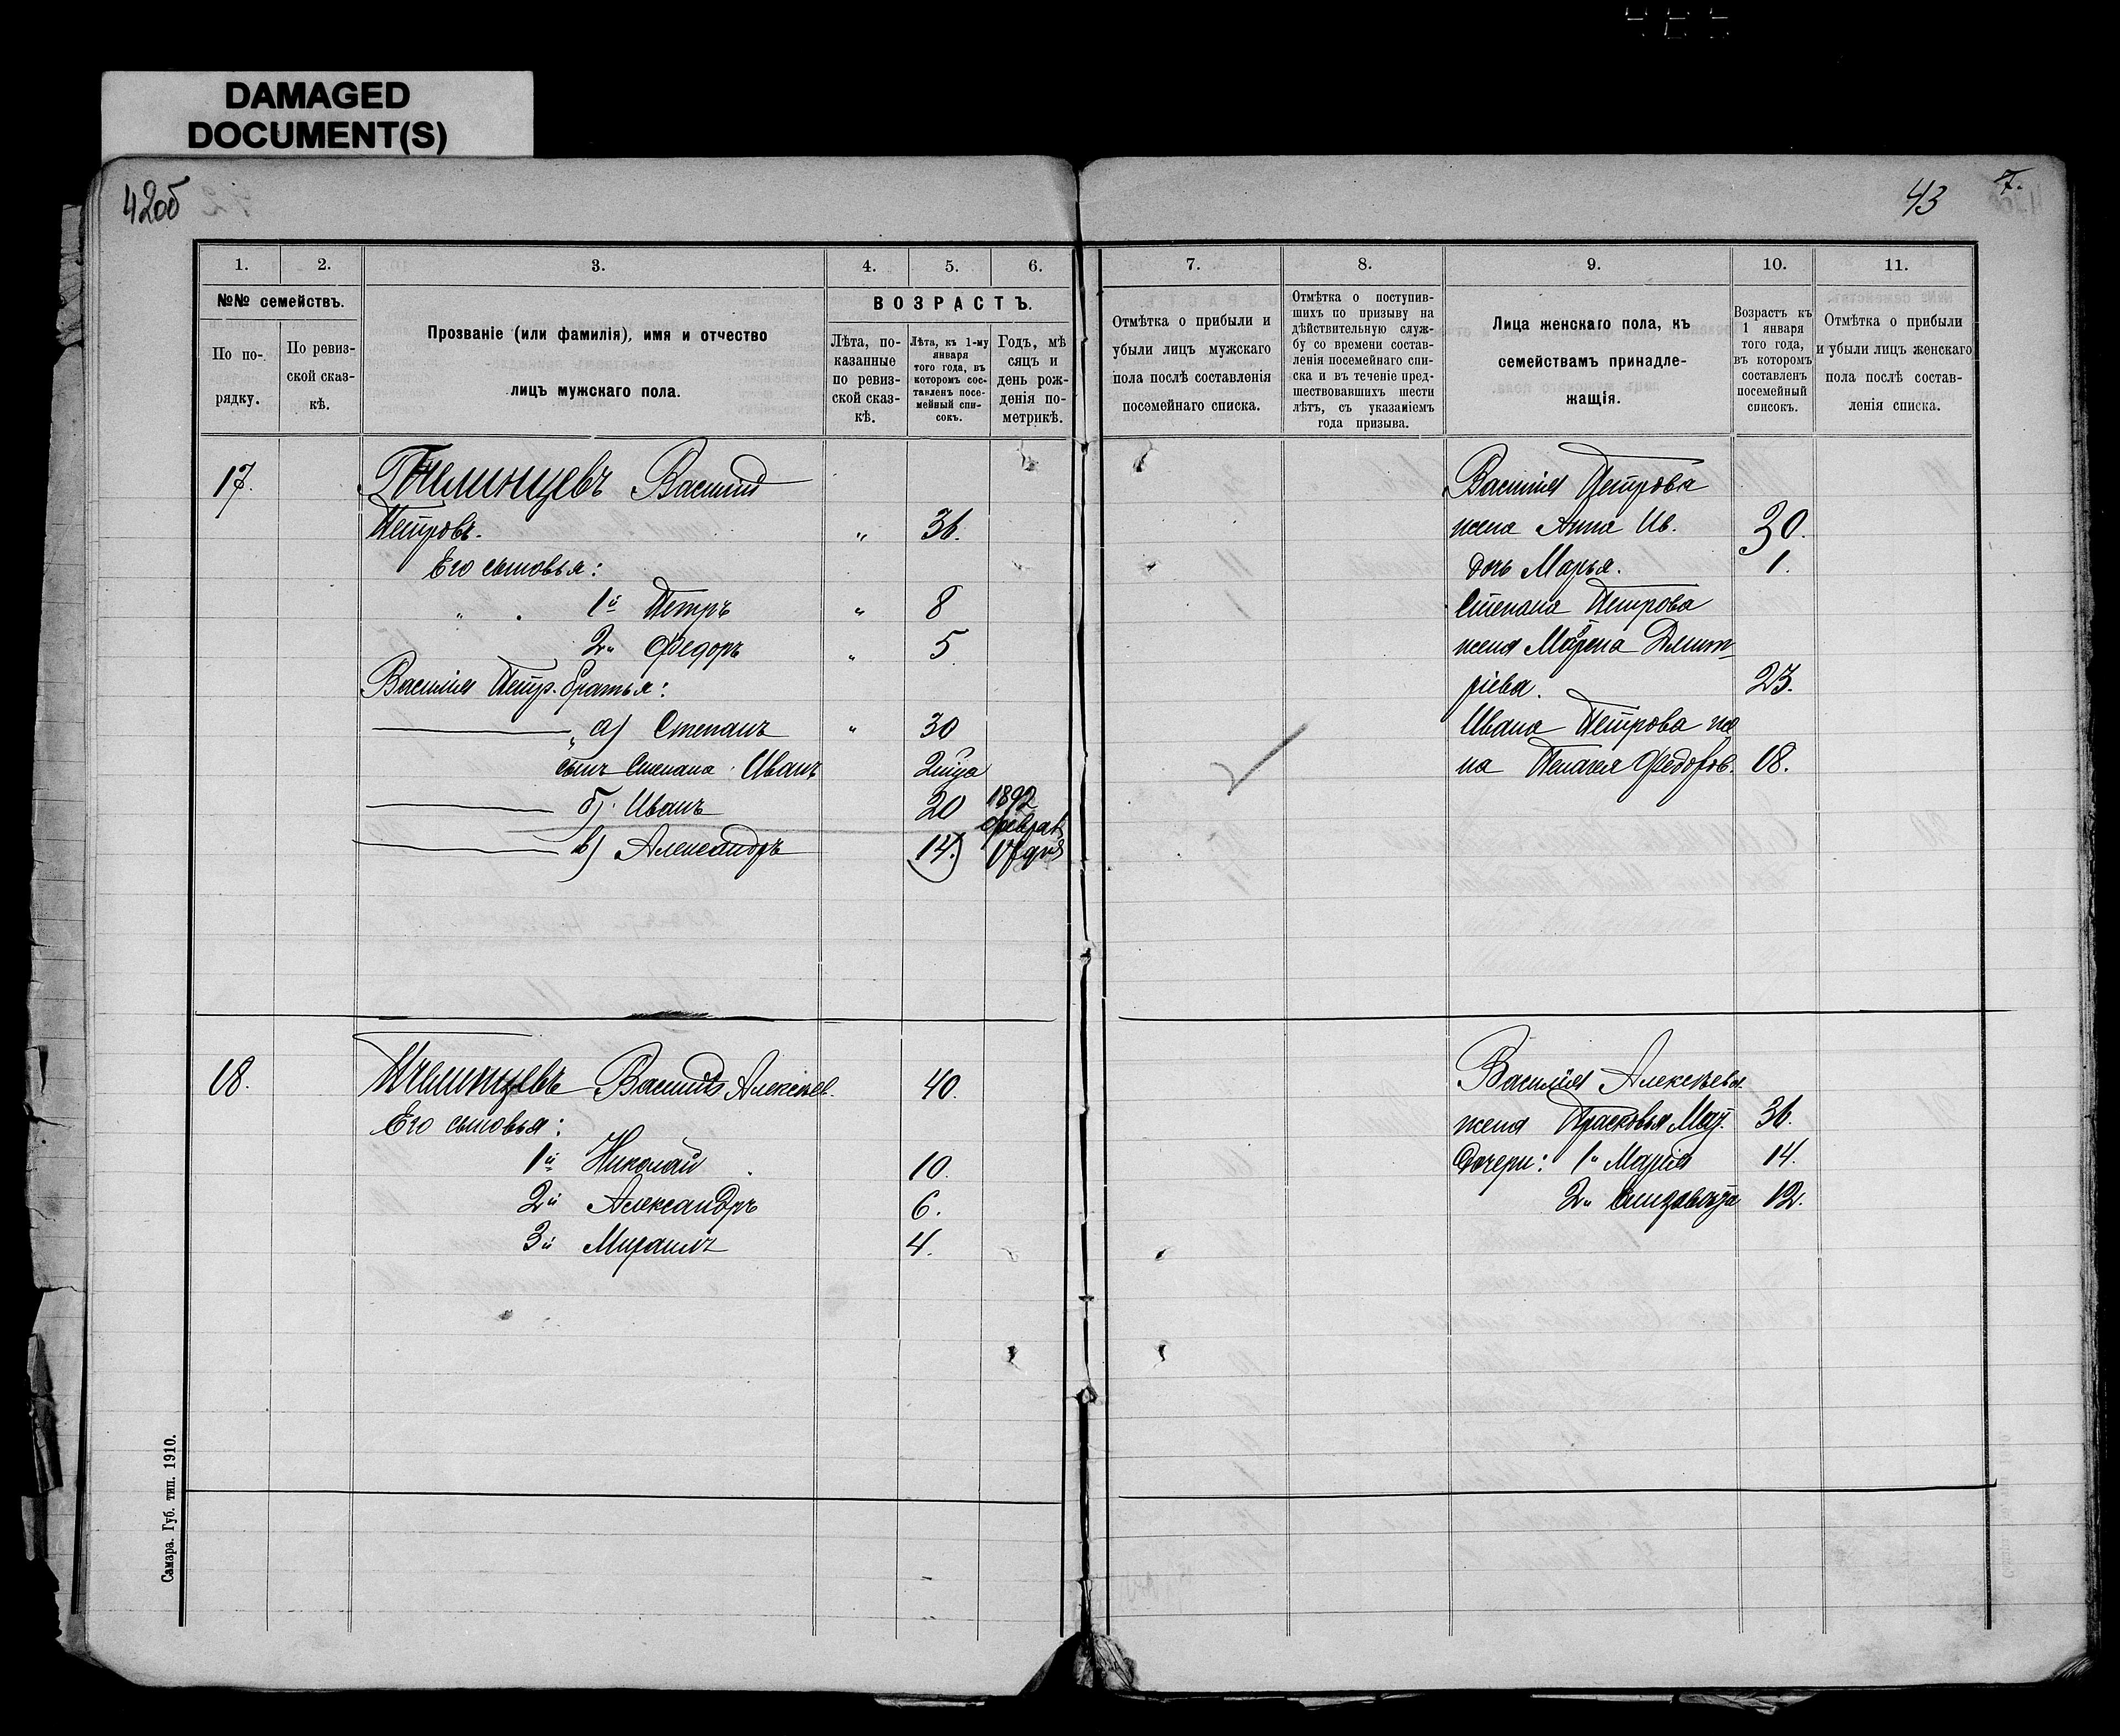 DAMAGED
DOCUMENT(S)
42об
43
7.
1.
2.
3.
4.
5.
6.
7.
8.
9.
10.
11.
№№ семействъ.
По по-
рядку.
По ревиз-
ской сказ-
кѣ.
Прозваніе (или фамилія), имя и отчество
лицъ мужскаго пола.
ВОЗРАСТЪ.
Лѣта, по-
казанные
по ревиз-
ской сказ-
кѣ.
Лѣта, къ 1-му
января
того года, въ
которомъ сос-
тавленъ посе-
мейный спи-
сокъ.
Годъ, мѣ
сяцъ и
день рож-
денія по-
метрикѣ.
Отмѣтка о прибыли и
убыли лицъ мужскаго
пола послѣ составленія
посемейнаго списка.
Отмѣтка о поступив-
шихъ по призыву на
дѣйствительную служ-
бу со времени состав-
ленія посемейнаго спи-
ска и въ теченіе пред-
шествовавшихъ шести
лѣтъ, съ указаніемъ
года призыва.
Лица женскаго пола, къ
семействамъ принадле-
жащія.
Возрастъ къ
1 января
того года,
въ которомъ
составленъ
посемейный
списокъ.
Отмѣтка о прибыли
и убыли лицъ женскаго
пола послѣ состав-
ленія списка.
17. Василій
Петровъ. " 36.
Его сыновья:
" . 1й Петръ " 8
2й Федоръ " 5
Василія Петр. братья:
" а) Степанъ " 30
сынъ Степана Иванъ
б) Иванъ 20 1892
феврал
в) Александръ 14. 17 дня
Василія Петрова
жена Анна Ив. 30.
дочь Марья. 1.
Степана Петрова
жена Дмит-
ріева. 23.
Ивана Петрова же
на Пелагея Федоров. 18.
18. Пчелинцевъ Василій Алексѣев. 40.
Его сыновья:
1й Николай 10.
2й Александръ 6.
3й Михаилъ 4.
Василія Алексѣева
жена Прасковья 36.
Дочери: 1я Марія 14.
2я Елизавета 12.
Самара. Губ. тип. 1910.